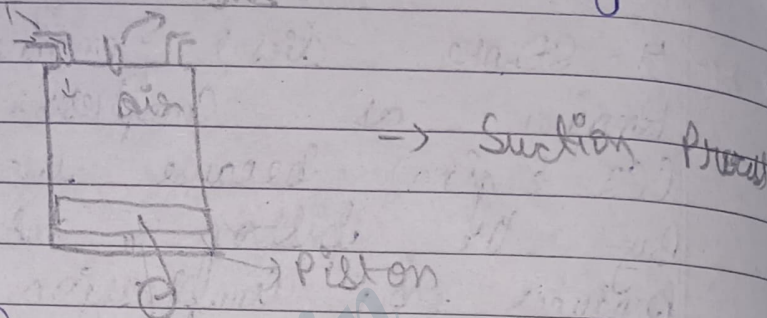 air
→ Suction Process
→ Piston